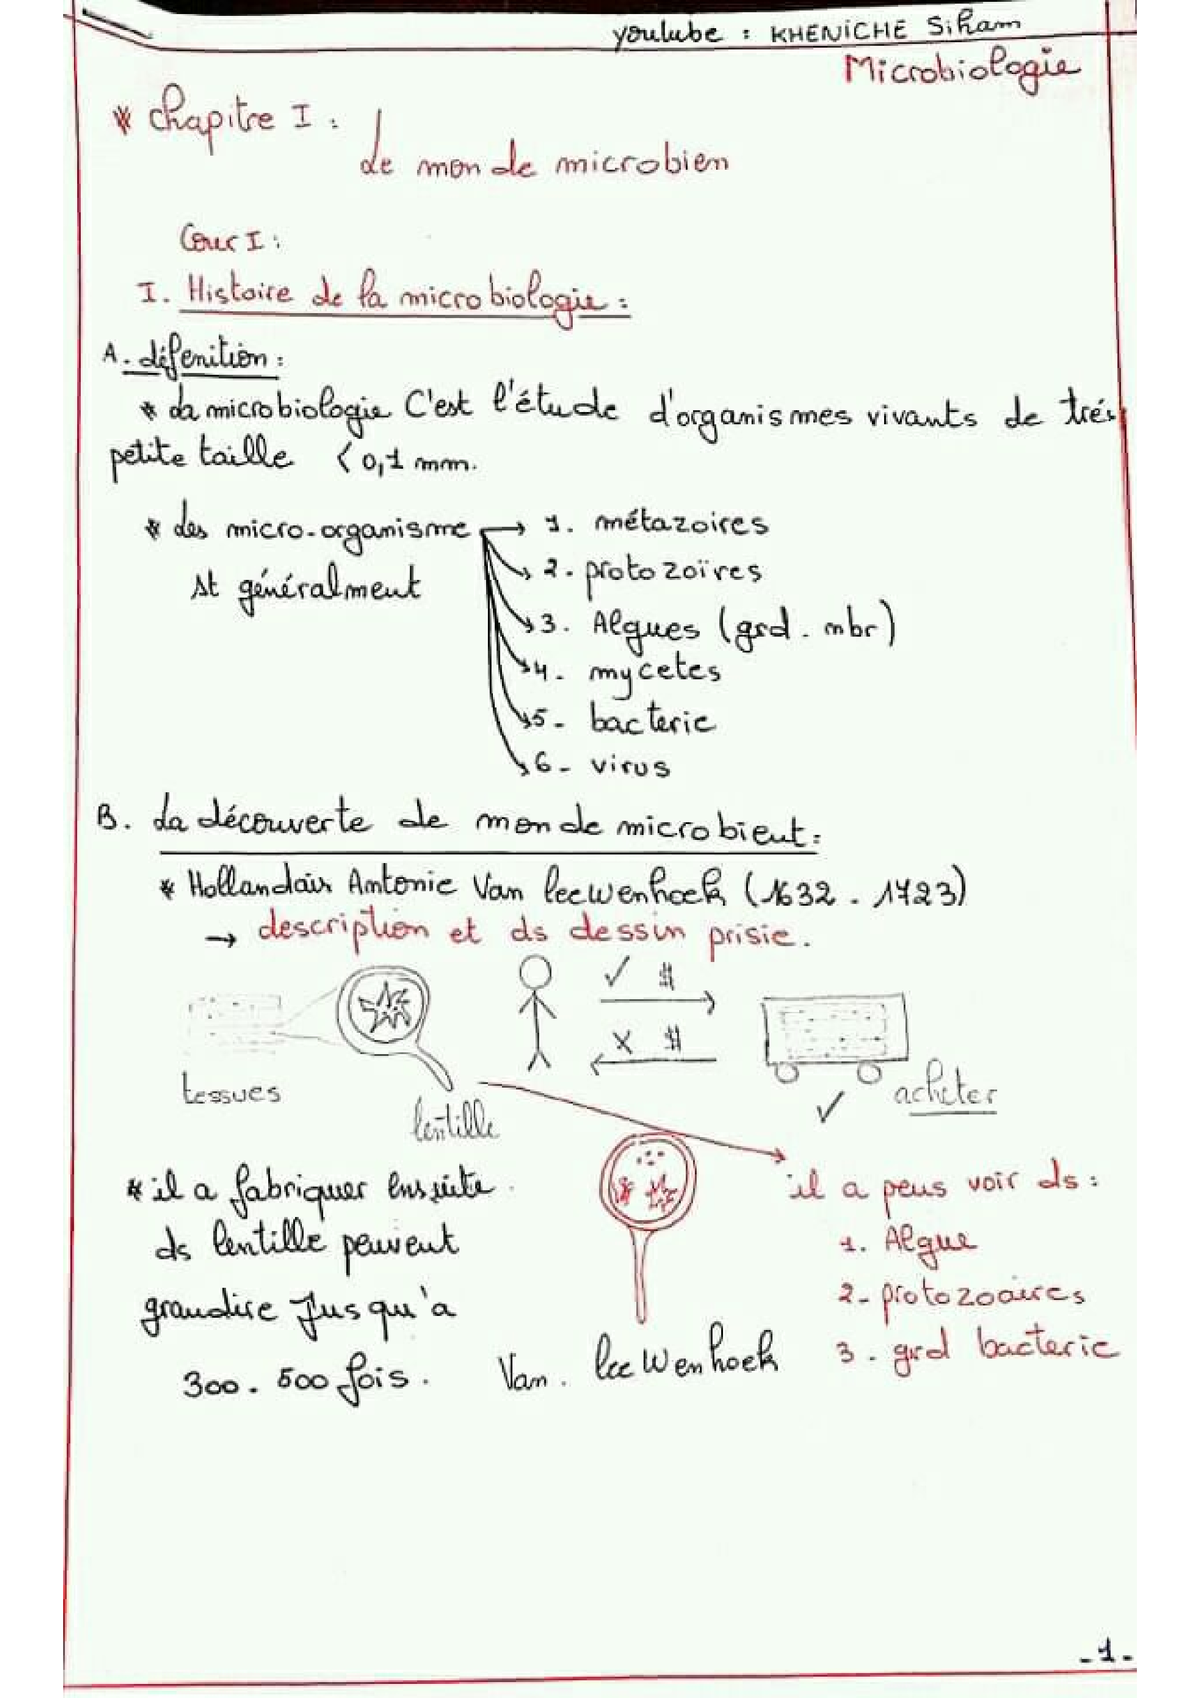 youtube : KHENICHE Siham
Microbiologie
* Chapitre I :
Le monde microbien
Cour I :
I. Histoire de la microbiologie :
A. défenition :
* La microbiologie C'est l'étude d'organismes vivants de trés
petite taille < 0,1 mm.
* des micro-organisme → 1. métazoires
st généralment
2. protozoïres
3. Algues (grd. mbr)
4. mycetes
5- bacterie
6- virus
B. La découverte de monde microbient :
* Hollandais Antonie Van leewenhoek (1632 - 1723)
→ description et ds dessin prisie.
✓ $
X $
tessues
lentille
✓ acheter
* il a fabriquer ensuite
ds lentille peuvent
grandire Jusqu'a
300 - 500 fois.
Van. leewenhoek
il a peus voir ds :
1. Algue
2- protozoaires
3. grd bacterie
-1-